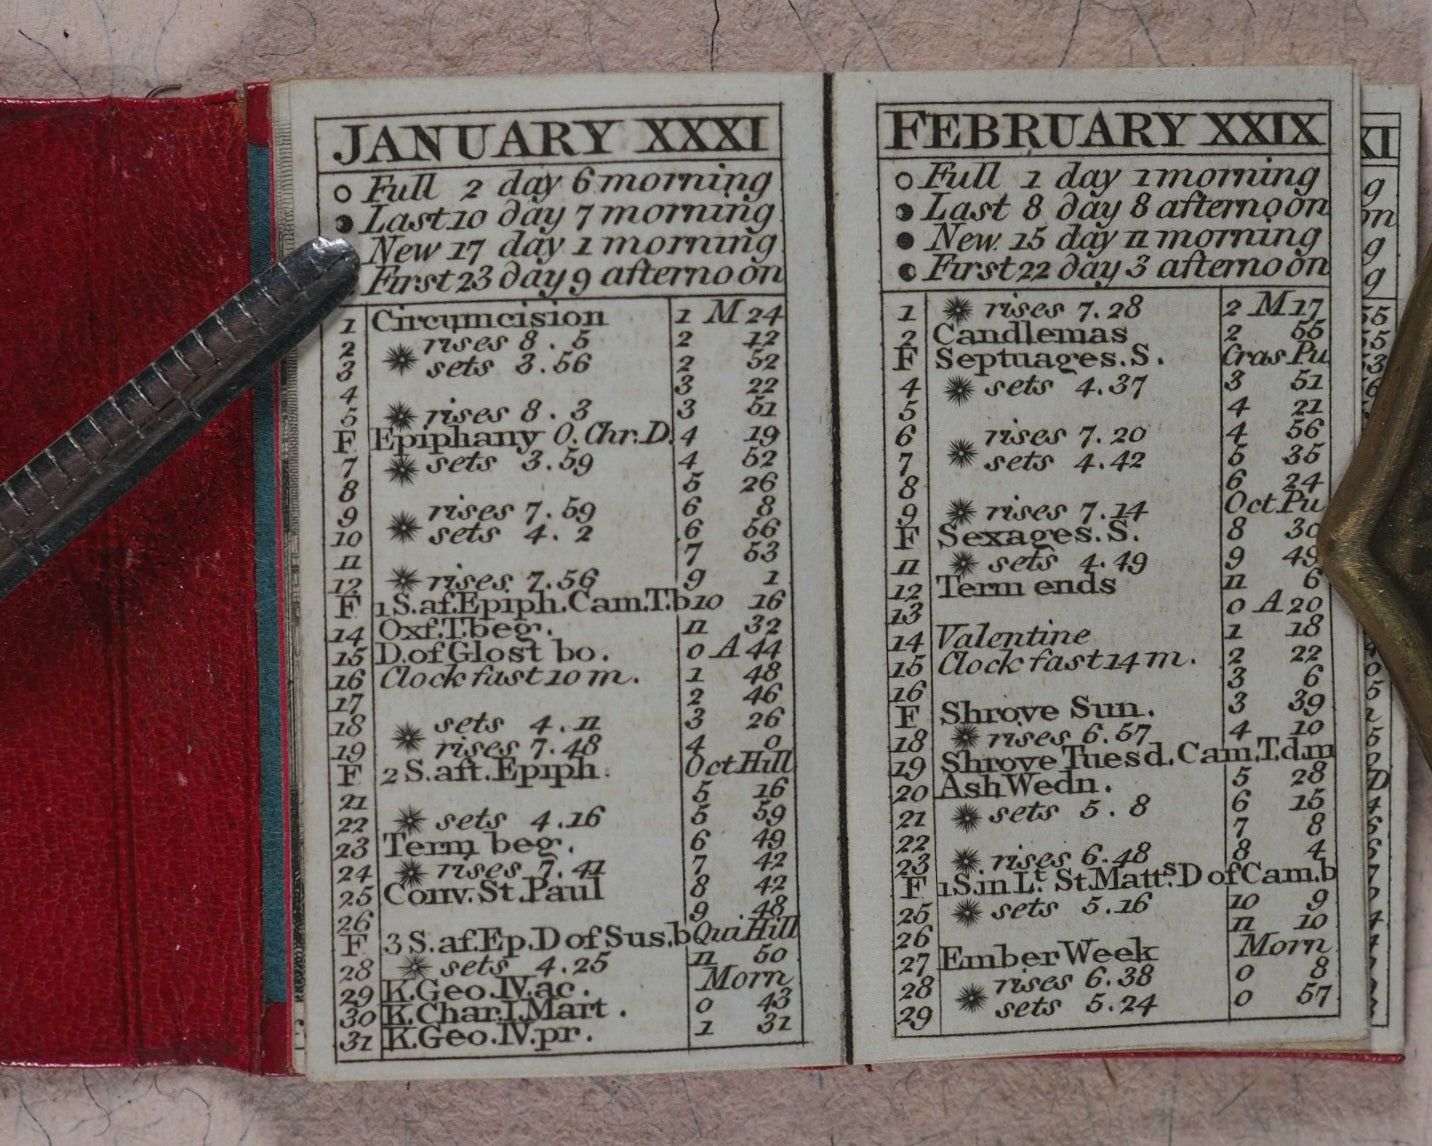 JANUARY XXXI
Full 2 day 6 morning
Last 10 day 7 morning
New 17 day 1 morning
First 23 day 9 afternoon
1 Circumcision 1 M 24
2 rises 8 . 5 2 12
3 sets 3.56 2 52
4 3 22
5 rises 8 . 3 3 51
F Epiphany O. Chr. D. 4 19
7 sets 3.59 4 52
8 5 26
9 rises 7.59 6 8
10 sets 4 . 2 6 56
11 7 53
12 rises 7.56 9 1
F 1 S. af. Epiph. Cam. T. b 10 16
14 Oxf. T. beg. 11 32
15 D. of Glost bo. 0 A 44
16 Clock fast 10 m. 1 48
17 2 46
18 sets 4 . 11 3 26
19 rises 7.48 4 0
F 2 S. aft. Epiph. Oct Hill
21 5 16
22 sets 4.16 5 59
23 Term beg. 6 49
24 rises 7.41 7 42
25 Conv. St. Paul 8 42
26 9 48
F 3 S. af. Ep. D of Sus. b Qui Hill
28 sets 4.25 11 50
29 K. Geo. IV. ac. Morn
30 K. Char. I. Mart . 0 43
31 K. Geo. IV. pr. 1 31
FEBRUARY XXIX
Full 1 day 1 morning
Last 8 day 8 afternoon
New 15 day 11 morning
First 22 day 3 afternoon
1 rises 7.28 2 M 17
2 Candlemas 2 55
F Septuages. S. Cras. Pu
4 sets 4.37 3 51
5 4 21
6 rises 7.20 4 56
7 sets 4.42 5 35
8 6 24
9 rises 7.14 Oct Pu
F Sexages. S. 8 30
11 sets 4.49 9 49
12 Term ends 11 6
13 0 A 20
14 Valentine 1 18
15 Clock fast 14 m. 2 22
16 3 6
F Shrove Sun. 3 39
18 rises 6.57 4 10
19 Shrove Tuesd. Cam. T. d. m
20 Ash Wedn. 5 28
21 sets 5 . 8 6 15
22 7 8
23 rises 6.48 8 4
F 1 S. in Lt. St. Matts. D of Cam. b
25 sets 5.16 10 9
26 11 10
27 Ember Week Morn
28 rises 6.38 0 8
29 sets 5.24 0 57